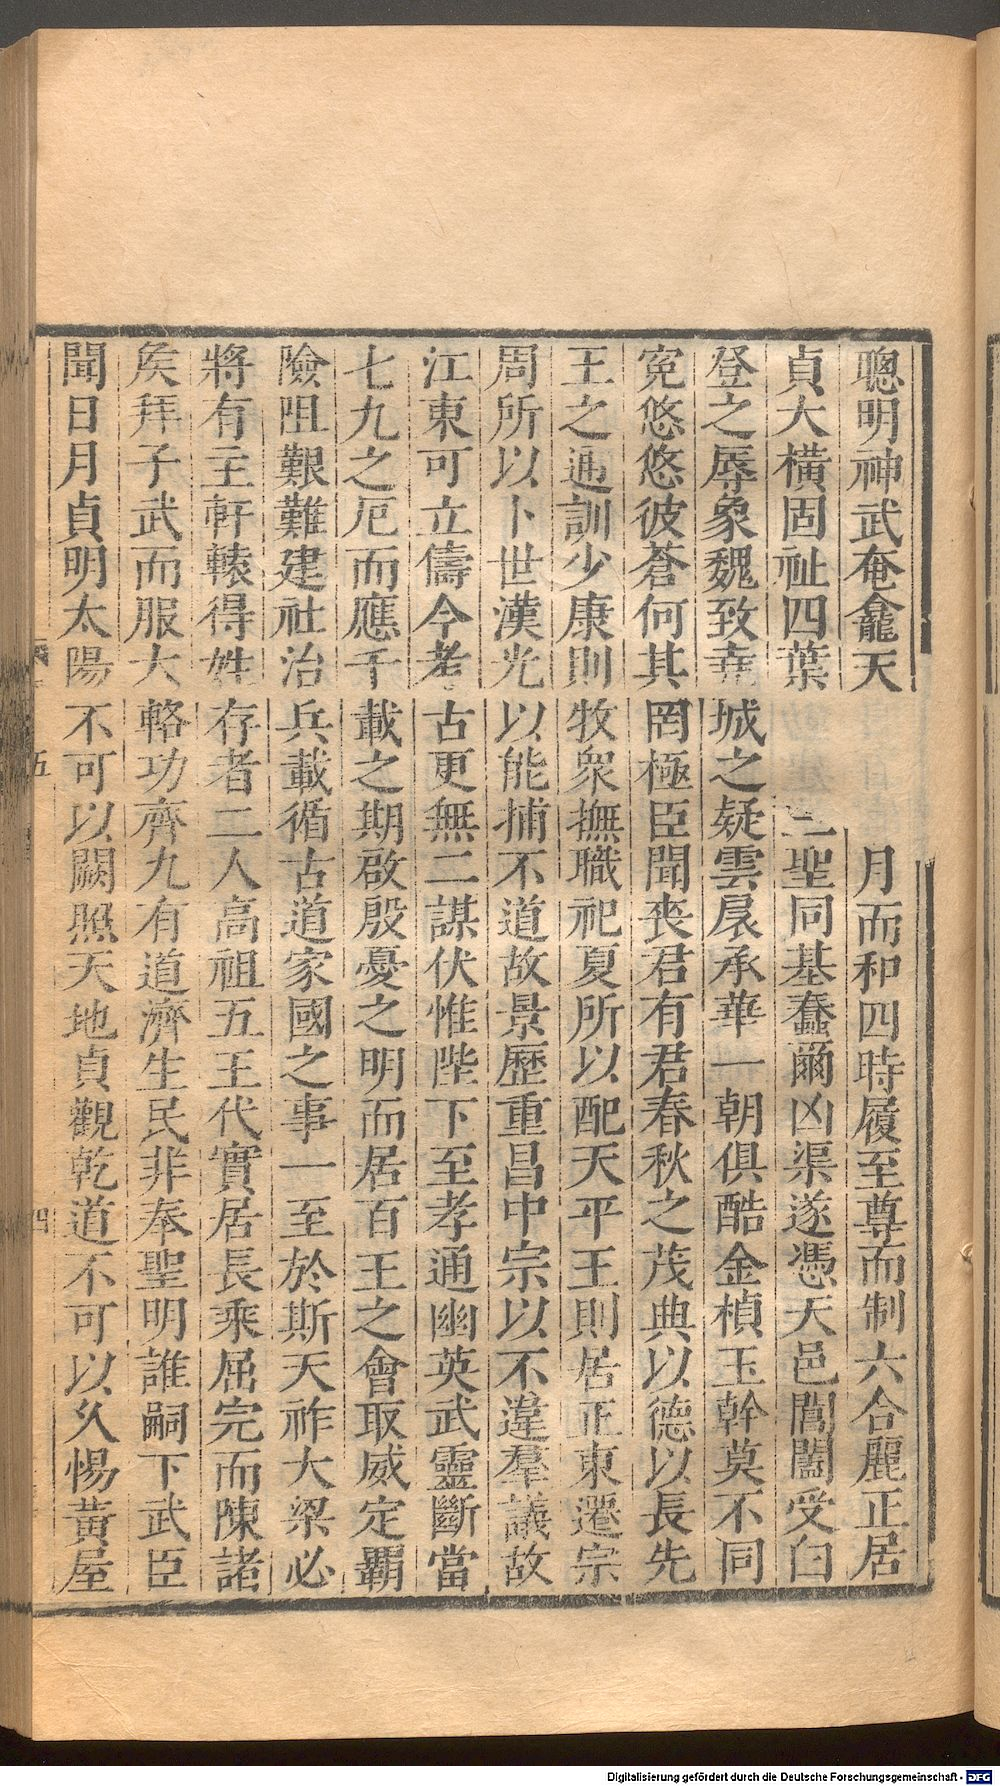 聰明神武奄龕天　　　月而和四時履至尊而制六合麗正居
貞大橫固祉四葉　　二聖同基蠢爾凶渠遂憑天邑閶闔受白
登之辱象魏致堯城之疑雲扆承華一朝俱酷金楨玉幹莫不同
寃悠悠彼蒼何其罔極臣聞喪君有君春秋之茂典以德以長先
王之通訓少康則牧衆撫職祀夏所以配天平王則居正東遷宗
周所以卜世漢光以能捕不道故景歷重昌中宗以不違羣議故
江東可立儔今考古更無二謀伏惟陛下至孝通幽英武靈斷當
七九之厄而應千載之期啟殷憂之明而居百王之會取威定霸
險阻艱難建社治兵載循古道家國之事一至於斯天祚大梁必
將有主軒轅得姓存者二人高祖五王代實居長乘屈完而陳諸
矦拜子武而服大輅功齊九有道濟生民非奉聖明誰嗣下武臣
聞日月貞明太陽不可以闕照天地貞觀乾道不可以久惕黃屋
五
四
Digitalisierung gefördert durch die Deutsche Forschungsgemeinschaft - DFG